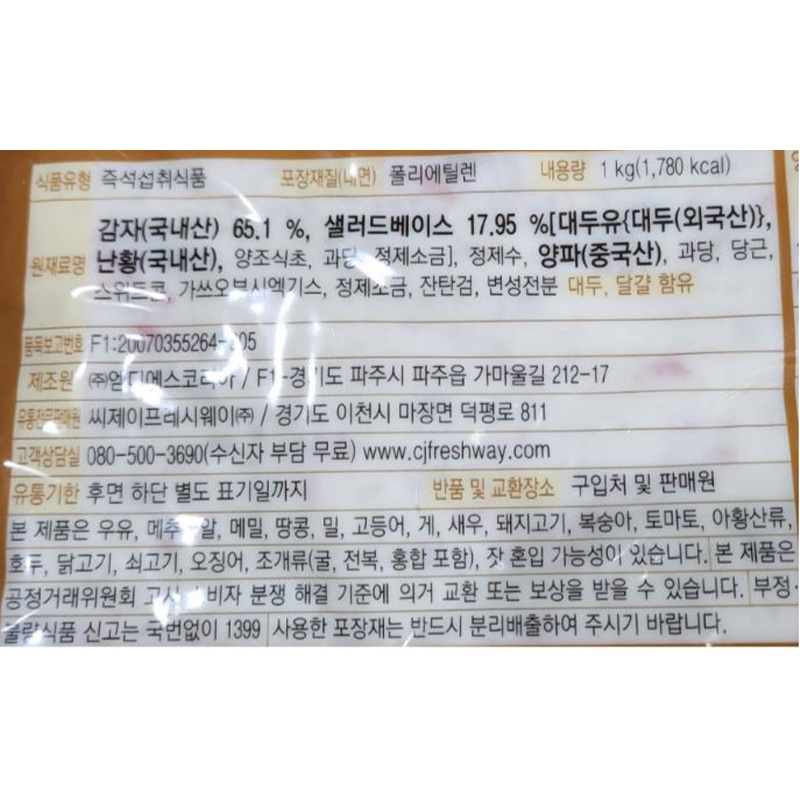 식품유형 즉석섭취식품 포장재질(내면) 폴리에틸렌 내용량 1 kg(1,780 kcal)
원재료명 감자(국내산) 65.1 %, 샐러드베이스 17.95 %[대두유{대두(외국산)},
난황(국내산), 양조식초, 과당, 정제소금], 정제수, 양파(중국산), 과당, 당근,
스위트콘, 가쓰오부시엑기스, 정제소금, 잔탄검, 변성전분 대두, 달걀 함유
품목보고번호 F1:20070355264-
제조원 ㈜엠디에스코리아 / F1-경기도 파주시 파주읍 가마울길 212-17
유통전문판매원 씨제이프레시웨이㈜ / 경기도 이천시 마장면 덕평로 811
고객상담실 080-500-3690(수신자 부담 무료) www.cjfreshway.com
유통기한 후면 하단 별도 표기일까지 반품 및 교환장소 구입처 및 판매원
본 제품은 우유, 메추리알, 메밀, 땅콩, 밀, 고등어, 게, 새우, 돼지고기, 복숭아, 토마토, 아황산류,
호두, 닭고기, 쇠고기, 오징어, 조개류(굴, 전복, 홍합 포함), 잣 혼입 가능성이 있습니다. 본 제품은
공정거래위원회 고시 소비자 분쟁 해결 기준에 의거 교환 또는 보상을 받을 수 있습니다. 부정·
불량식품 신고는 국번없이 1399 사용한 포장재는 반드시 분리배출하여 주시기 바랍니다.